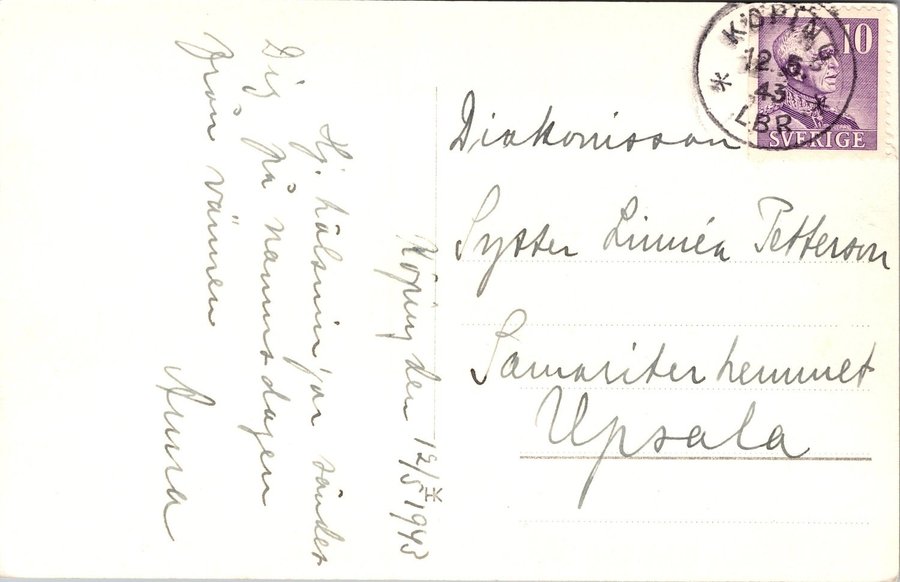 KÖPING
12.5.
43
LBR
10
SVERIGE
Diakonissan
Syster Linnéa Petterson
Samariterhemmet
Upsala
Köping den 12/5 1943
Hj. hälsningar sändes
Dig på namnsdagen
från vännen
Anna